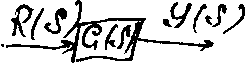 R(S) G(S) Y(S)